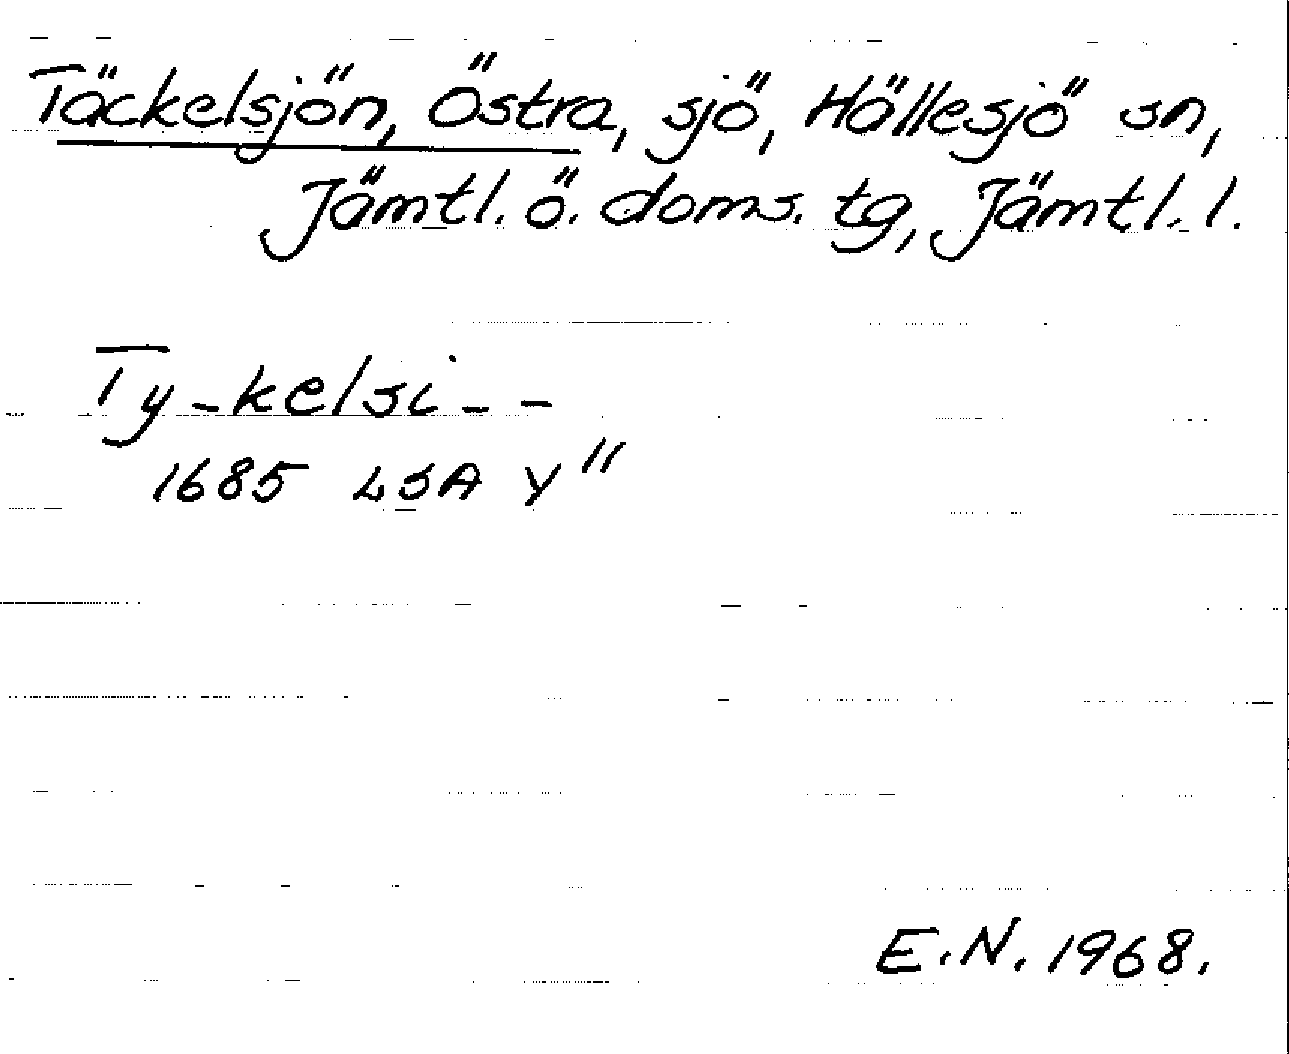 Täckelsjön, Östra, sjö, Hällesjö sn,
Jämtl. ö. doms. tg, Jämtl. l.
Ty-kelsi--
1685 LSA Y"
E.N. 1968.